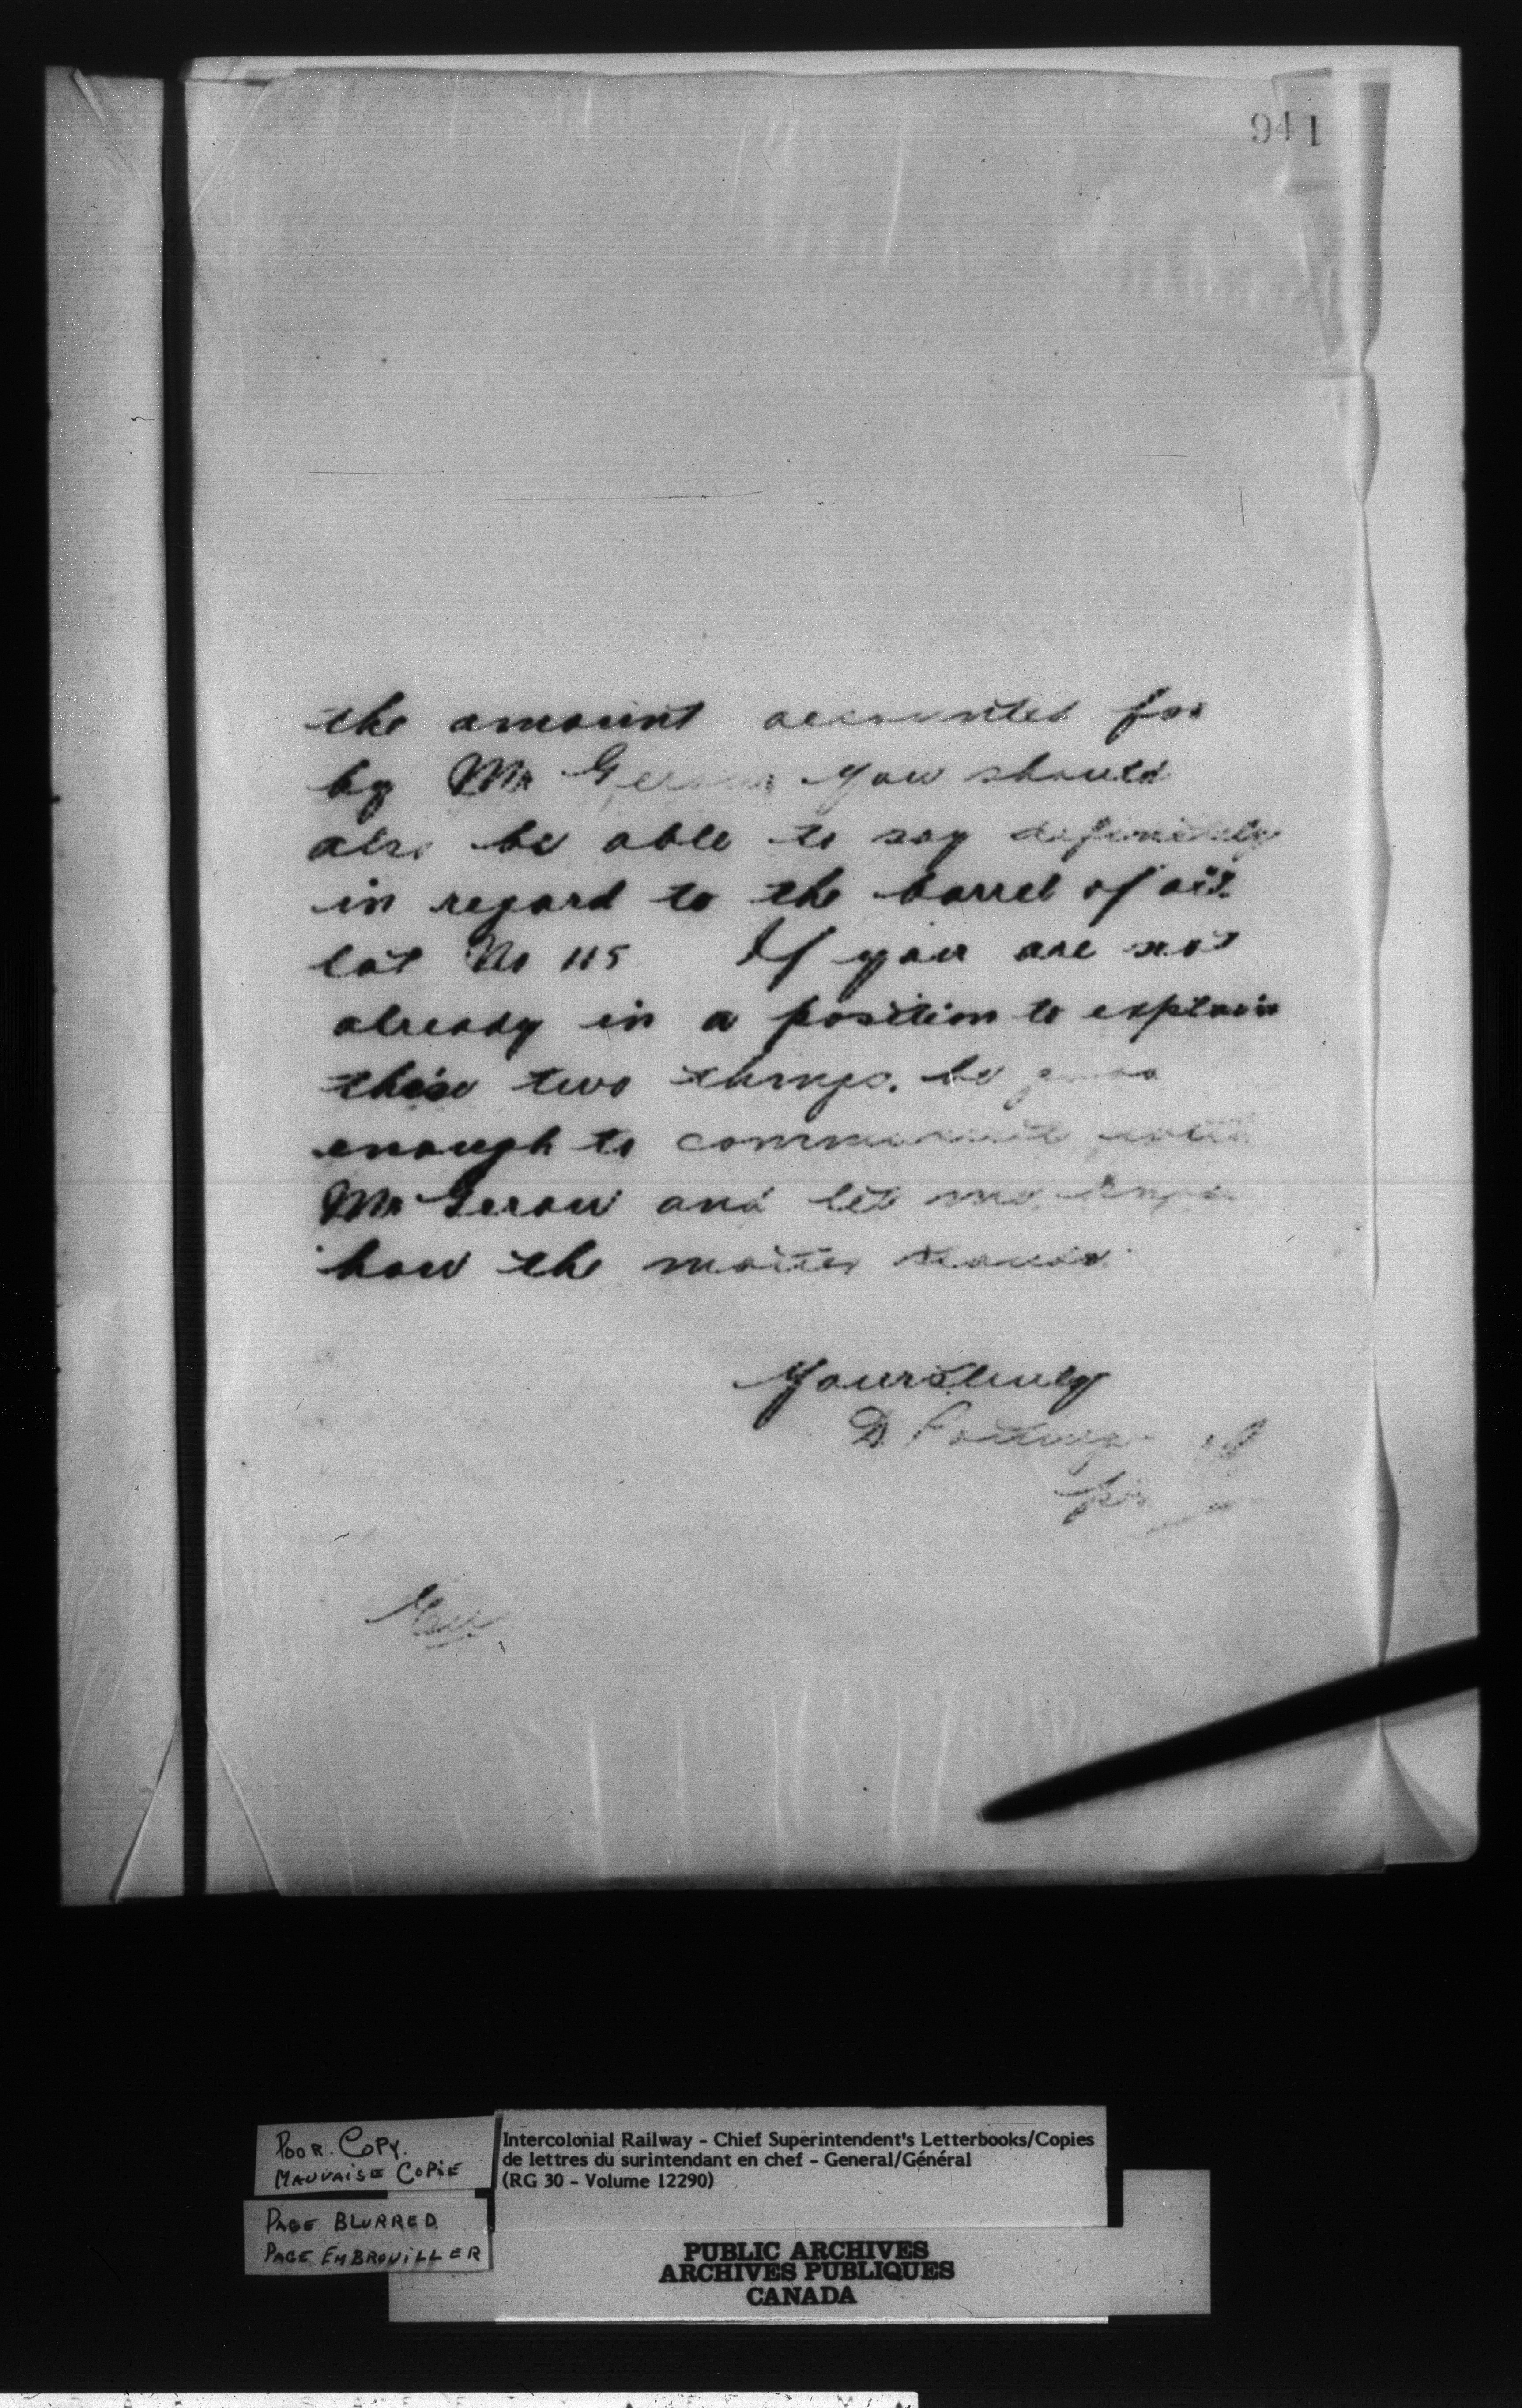 941
the amount accounted for
by Mr Gerow You should
also be able to say definitely
in regard to the barrel of oil
lot No 115 If you are not
already in a position to explain
these two things. be good
enough to communicate with
Mr Gerow and let me know
how the matter stands.
Yours truly
D. Pottinger
per
POOR COPY.
MAUVAISE COPIE
PAGE BLURRED
PAGE EMBROUILLER
Intercolonial Railway - Chief Superintendent's Letterbooks/Copies
de lettres du surintendant en chef - General/Général
(RG 30 - Volume 12290)
PUBLIC ARCHIVES
ARCHIVES PUBLIQUES
CANADA